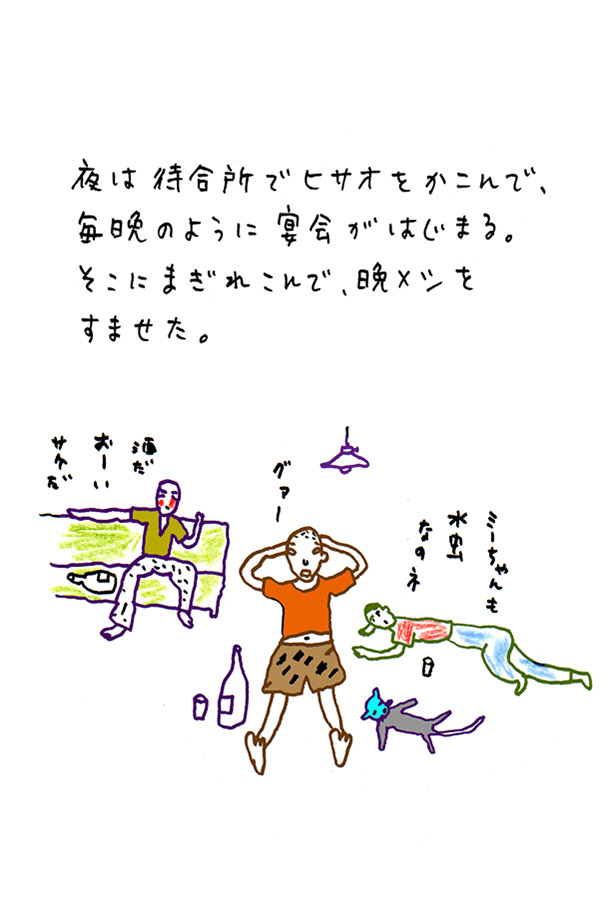 夜は待合所でヒサオをかこんで、
毎晩のように宴会がはじまる。
そこにまぎれこんで、晩メシを
すませた。
酒だ
おーい
サケだ
グァー
ミーちゃんも
水虫
なのネ